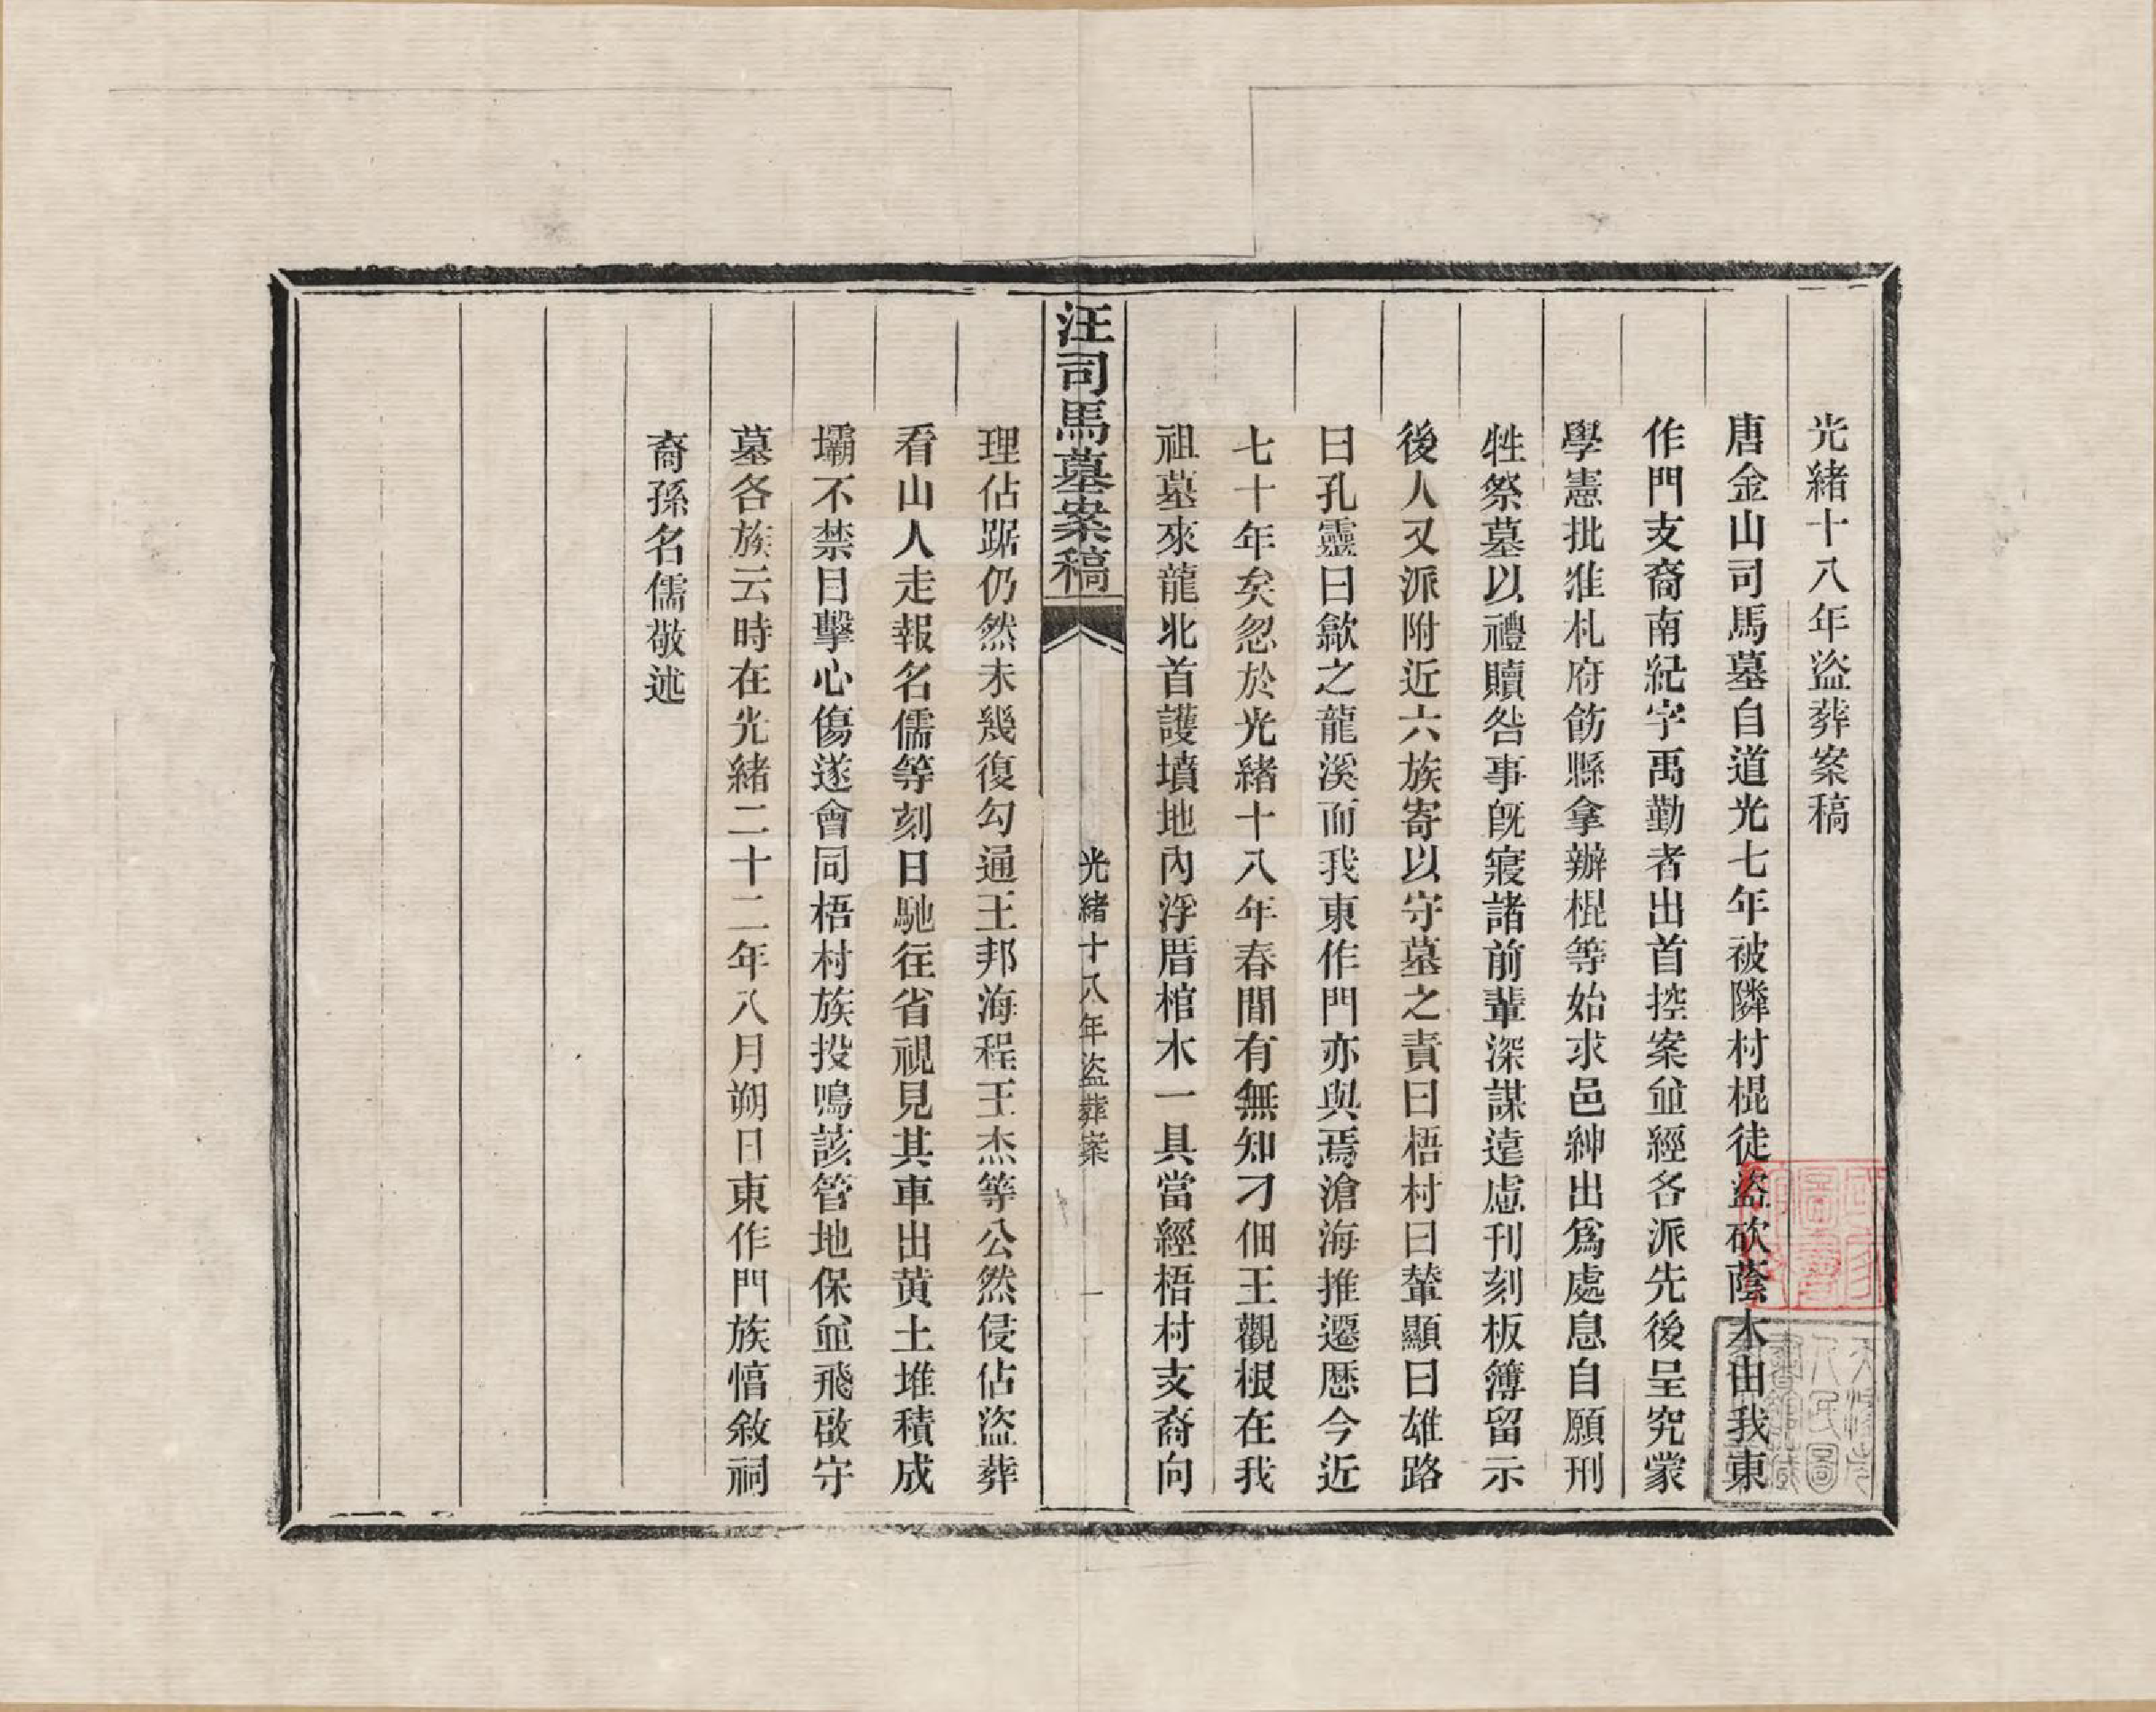 光緒十八年盜葬案稿
唐金山司馬墓自道光七年被隣村棍徒盜砍蔭木由我東
作門支裔南紀字禹勤者出首控案並經各派先後呈究蒙
學憲批准札府飭縣拿辦棍等始求邑紳出爲處息自願刑
牲祭墓以禮贖咎事旣寢諸前輩深謀遠慮刊刻板簿留示
後人又派附近六族寄以守墓之責曰梧村曰輋顯曰雄路
曰孔靈曰歙之龍溪而我東作門亦與焉滄海推遷歷今近
七十年矣忽於光緒十八年春間有無知刁佃王觀根在我
祖墓來龍北首護墳地內浮厝棺木一具當經梧村支裔向
汪司馬墓案稿
光緒十八年盜葬案
一
理佔踞仍然未幾復勾通王邦海程王杰等公然侵佔盜葬
看山人走報名儒等刻日馳往省視見其車出黄土堆積成
壩不禁目擊心傷遂會同梧村族投鳴該管地保並飛啟守
墓各族云時在光緒二十二年八月朔日東作門族愭敘祠
裔孫名儒敬述